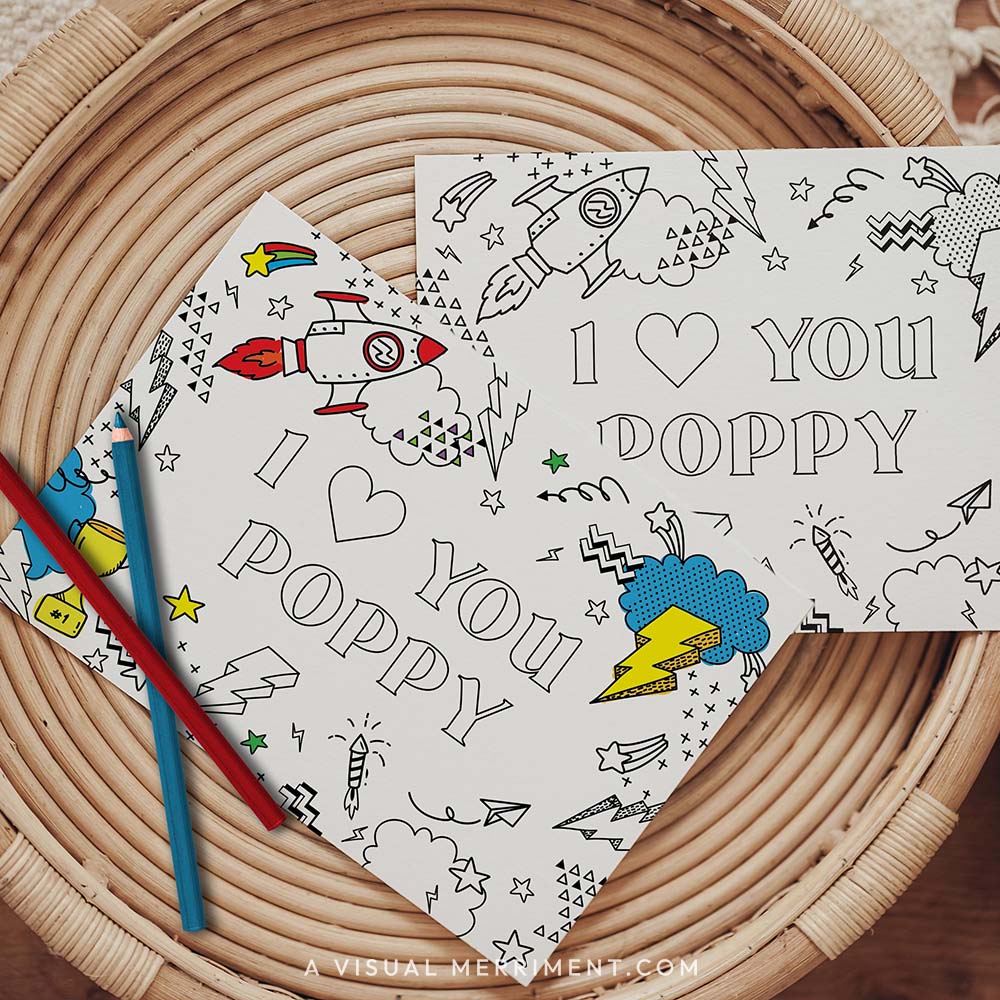 I ♡ YOU
POPPY
I ♡ YOU
POPPY
#1
A VISUAL MERRIMENT.COM